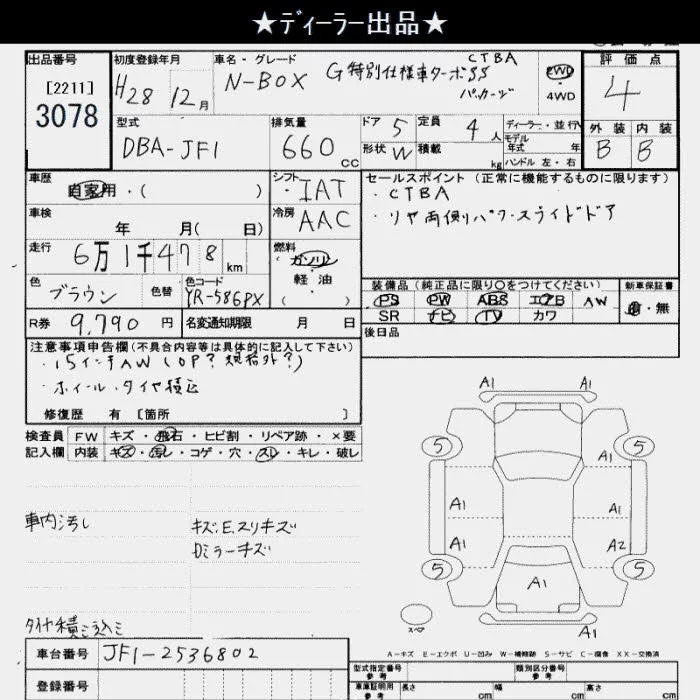 ★ディーラー出品★
出品番号 初度登録年月 車名・グレード 評価点
[2211]
3078
H28 12月
N-BOX G特別仕様車ターボSS
CTBA
パッケージ
2WD
4WD
4
型式 排気量 ドア 5 定員 4人 ディーラー・並行
DBA-JF1 660cc
形状 W 積載 kg
モデル年式 年
ハンドル 左・右
外装 内装
B B
車歴 自家用・( )
シフト IAT
セールスポイント (正常に機能するものに限ります)
・CTBA
・リヤ両側パワースライドドア
車検 年 月( 日)
冷房 AAC
走行 6万1千478km
燃料 ガソリン
軽油
( )
色 ブラウン 色替 色コード YR-586PX
装備品(純正品に限り○をつけてください) 新車保証書
PS PW ABS エアB AW
SR ナビ TV カワ
有・無
R券 9,790円 名変通知期限 月 日
後日品
注意事項申告欄(不具合内容等は具体的に記入して下さい)
・15インチAW(OP?規格外?)
・ホイール・タイヤ積込
修復歴 有 [箇所 ]
検査員 FW キズ・飛石・ヒビ割・リペア跡・×要
記入欄 内装 キズ・汚れ・コゲ・穴・スレ・キレ・破レ
車内汚れ
キズ.E.スリキズ
Dミラーキズ
タイヤ積ミ込ミ
A1 A1
5 5
A1
A1 A1
A1 A2
5 A1 5
スペア
A1
A-キズ E-エクボ U-凹み W-補修跡 S-サビ C-腐食 XX-交換済
車台番号 JF1-2536802
登録番号
型式指定番号 参考 類別区分番号 参考
車庫証明用 参考 長さ cm 幅 cm 高さ cm